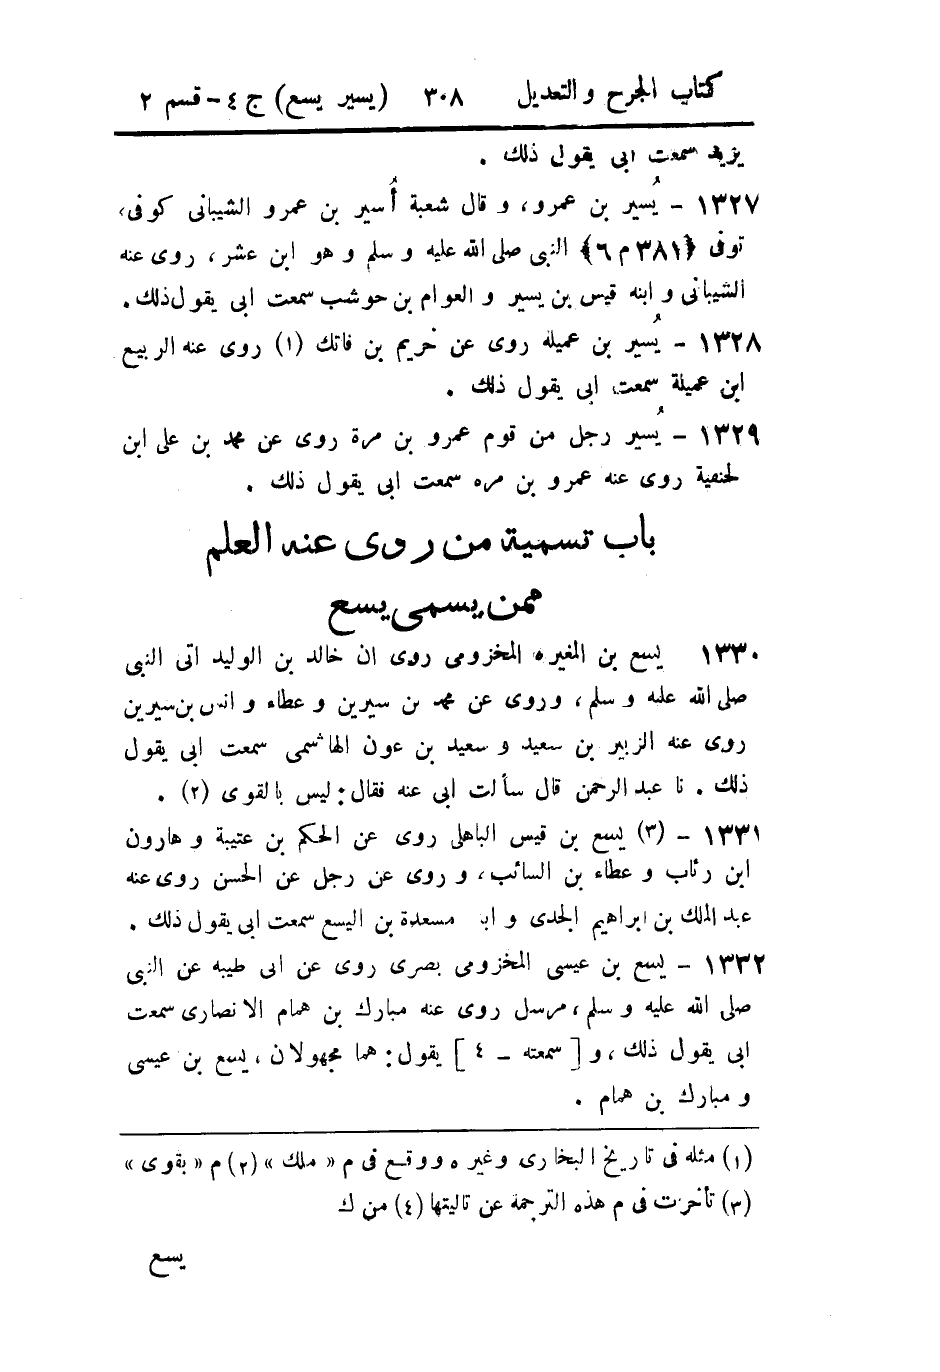 كتاب الجرح والتعديل ٣٠٨ (يسير يسع) ج ٤ - قسم ٢
يزيد سمعت ابى يقول ذلك .
١٣٢٧ - يُسير بن عمرو، و قال شعبة أُسير بن عمرو الشيبانى كوفى،
توفى {٣٨١ م ٦} النبى صلى الله عليه و سلم و هو ابن عشر، روى عنه
الشيبانى و ابنه قيس بن يسير و العوام بن حوشب سمعت ابى يقول ذلك.
١٣٢٨ - يُسير بن عميلة روى عن خريم بن فاتك (١) روى عنه الربيع
ابن عميلة سمعت ابى يقول ذلك .
١٣٢٩ - يُسير رجل من قوم عمرو بن مرة روى عن محمد بن على ابن
لحنفية روى عنه عمرو بن مره سمعت ابى يقول ذلك .
باب تسمية من روى عنه العلم
ممن يسمى يسع
١٣٣٠ يسع بن المغيره المخزومى روى ان خالد بن الوليد اتى النبى
صلى الله عليه و سلم، وروى عن محمد بن سيرين و عطاء و انس بن سيرين
روى عنه الزبير بن سعيد و سعيد بن عون الهاشمى سمعت ابى يقول
ذلك . نا عبد الرحمن قال سألت ابى عنه فقال: ليس بالقوى (٢) .
١٣٣١ - (٣) يسع بن قيس الباهلى روى عن الحكم بن عتيبة و هارون
ابن رئاب و عطاء بن السائب، و روى عن رجل عن الحسن روى عنه
عبد الملك بن ابراهيم الجدى و ابـ مسعدة بن اليسع سمعت ابى يقول ذلك .
١٣٣٢ - يسع بن عيسى المخزومى بصرى روى عن ابى طيبه عن النبى
صلى الله عليه و سلم، مرسل روى عنه مبارك بن همام الانصارى سمعت
ابى يقول ذلك، و [سمعته - ٤] يقول: هما مجهولان، يسع بن عيسى
و مبارك بن همام .
(١) مثله فى تاريخ البخارى وغيره ووقع فى م « ملك » (٢) م « بقوى »
(٣) تأخرت فى م هذه الترجمة عن تاليتها (٤) من ك
يسع